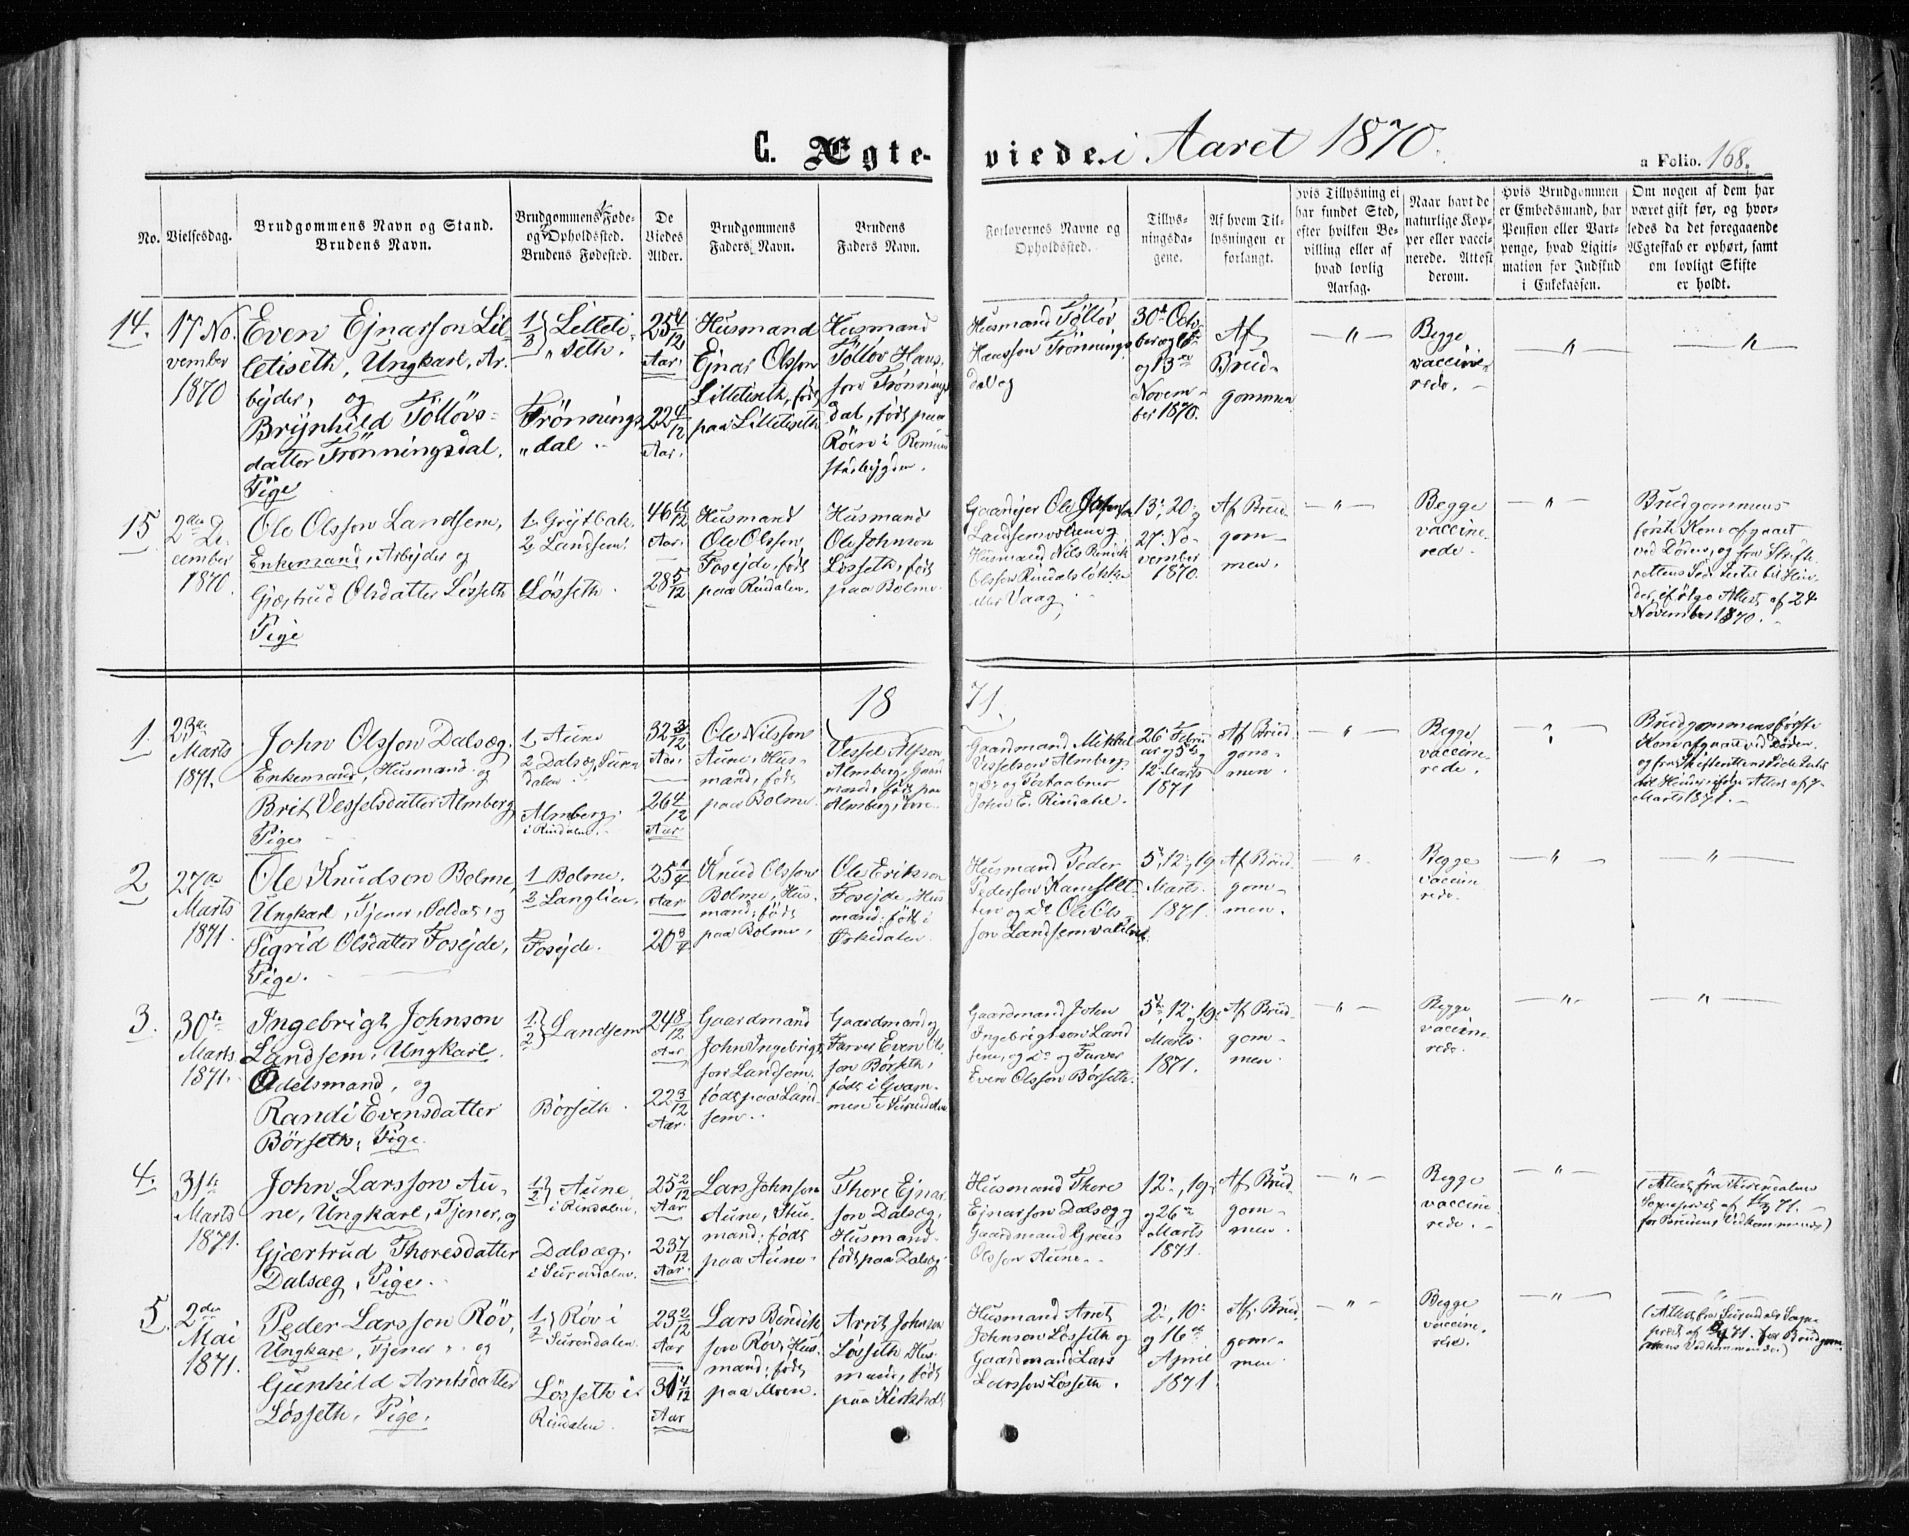 C. Ægteviede i Aaret 1870.
a Folio. 168.
No.
Vielsesdag.
Brudgommens Navn og Stand.
Brudens Navn.
Brudgommens Føde-
og Opholdssted.
Brudens Fødested.
De
Viedes
Alder.
Brudgommens
Faders Navn.
Brudens
Faders Navn.
Forlovernes Navne og
Opholdssted.
Tillys-
ningsda-
gene.
Af hvem Til-
lysningen er
forlangt.
Hvis Tillysning ei
har fundet Sted,
efter hvilken Be-
villing eller af
hvad lovlig
Aarsag.
Naar havt de
naturlige Kop-
per eller vacci-
nerede. Attest
derom.
Hvis Brudgommen
er Embedsmand, har
Pension eller Vart-
penge, hvad Ligiti-
mation for Indskud
i Enkekassen.
Om nogen af dem har
været gift før, og hvor-
ledes da det foregaaende
Ægteskab er ophørt, samt
om lovligt Skifte
er holdt.
14.
17 No
vember
1870
Even Ejnarsson Lil-
letiseth, Ungkarl, Ar-
bejder, og
Brynhild Tölløvs-
datter Trönningsdal,
Pige
1
2
} Litleti
"seth.
Trönnings
"dal
25 4/12
Aar.
22 4/12
Aar.
Husmand
Ejnar Olsson
Litletiseth, født
paa Litletiseth
Husmand
Tölløv Hans-
son Trönnings
dal, født paa
Röen i Rennus
Husmand Tölløv
Hansson Trönnings
dal og
30te Octo-
ber og 6te
og 13de
Novem-
ber 1870.
Af
Brud-
gommen
— " —
Begge
vaccine-
rede. —
— " —
— " —
15
2den De
cember
1870.
Ole Olsson Landsem,
Enkemand, Arbejder og
Gjertrud Olsdatter Lösseth
Pige
1. Grytbak.
2. Landsem.
Lösseth.
46 4/12
Aar.
28 5/12
Husmand
Ole Olsson
Fosejde, født
paa Rindalen.
Husmand
Ole Johnson
Lösseth, født
paa Bolme.
Gaardejer Ole
Husmand Nils
Olsson Rindals
eller Vaag.
13, 20 og
27 No-
vember
1870.
Af Brud-
gom-
men.
— " —
Begge
vaccine-
rede.
— " —
Brudgommens
første Kone afgaaet
ved Døden, og fra Skifte
rettens Side Intet til Hin-
der, ifølge Attest af 24
November 1870.
18
71.
1
23de
Marts
1871.
John Olsson Dalsæg.
Enkemand, Husmand og
Brit Vesselsdatter Almberg,
Pige
1, Aune
2, Dalsæg, Suren
dalen
Almberg
i Rindalen.
32 3/12
Aar.
26 4/12
Aar.
Ole Nilsson
Aune, Hus-
mand, født
paa Bolme.
Vessel
Almberg, Gaard
mand, født paa
Almberg
Gaardmand Mikkel
Vesselsen Almberg
John E. Rindahl.
26 Febru
ar og 5te og
12 Marts
1871
Af Brud
gom-
men.
— " —
Begge
vaccine-
rede.
— " —
Brudgommens første
Kone afgaaet ved Døden
og fra Skifterettens Side Intet
til Hinder, ifølge Attest af 7
Marts 1871. —
2
27de
Marts
1871.
Ole Knudson Bolme,
Ungkarl, Tjener, Soldat, og
Sigrid Olsdatter Fosejde,
Pige.
1 Bolme.
2 Langlien.
Fosejde.
25 1/4
Aar
20 3/4
Knud Olsson
Bolme, Hus-
mand, født
paa Bolme
Ole Erikson
Fosejde, Hus
mand, født i
Orkedalen
Husmand Peder
Pederson
og Do Ole Ols-
son Landsem
5te, 12te, 19
Marts
1871.
Af Brud
gom-
men.
— " —
Begge
vaccine-
rede.
— " —
— " —
3.
30te
Marts
1871.
Ingebrigt Johnson
Landsem, Ungkarl
Odelsmand, og
Randi Evensdatter
Börseth, Pige.
1.
2
} Landsem
Börseth.
24 8/12
Aar
22 3/12
Aar.
Gaardmand
John Ingebrigt-
son Landsem,
født paa Land-
sem.
Gaardmand og
Farver Even Ols-
son Börseth,
født i Qvam-
men i Surendalen
Gaardmand John
Ingebrigtson Land
sem, og Do og Farver
Even Olsson Börseth.
5te, 12te, 19
Marts
1871.
Af Brud-
gom-
men.
— " —
Begge
vaccine-
rede.
— " —
— " —
4.
31te
Marts
1871.
John Larsson Au-
ne, Ungkarl, Tjener, og
Gjærtrud Thoresdatter
Dalsæg, Pige.
1
2
} Aune
i Rindalen.
Dalsæg
i Surendalen.
25 2/12
Aar
23 7/12
Aar.
Lars Johnson
Aune, Hus-
mand, født
paa Aune
Thore Ejnar-
son Dalsæg,
Husmand
født paa Dalsæg
Husmand Thore
Ejnarsson Dalsæg og
Gaardmand
Olsson Aune.
12te, 19
og 26de
Marts
1871.
Af Brud-
gom-
men.
— " —
Begge
vaccine-
rede.
— " —
(Attest fra Surendalens
for Brudens Vedkommende)
5.
2den
Mai
1871.
Peder Larsson Röv,
Ungkarl, Tjener og
Gunhild Arntsdatter
Lösseth, Pige.
1
2
} Röv i
Surendalen.
Lösseth i
Rindalen
23 2/12
Aar
31 4/12
Aar
Lars
son Röv, Hus-
mand, født
paa Moen.
Arnt Johnson
Lösseth Hus-
mand, født
paa
Husmand Arnt
Johnson Lösseth og
Gaardmand Lars
Larsson Lösseth.
2, 10
og 16de
April
1871.
Af Brud
gom-
men.
— " —
Begge
vaccine-
rede.
— " —
(Attest fra Surendals Sogne-
præst af 71. for Brudgom-
mens Vedkommende)